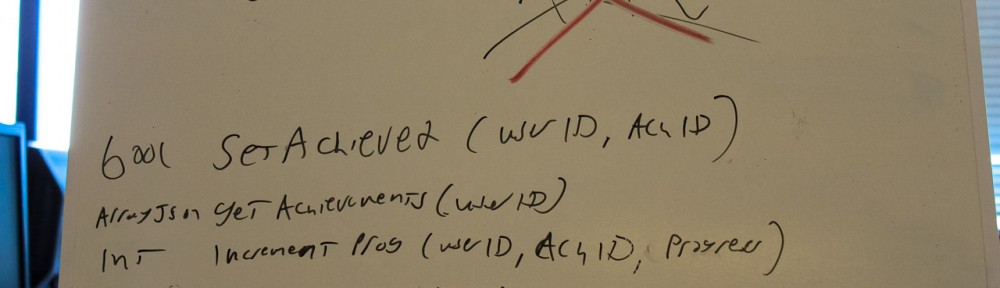 bool SetAchieved (userID, AchID)
ArrayJson getAchievements (userID)
Int IncrementProg (userID, AchID, Progress)